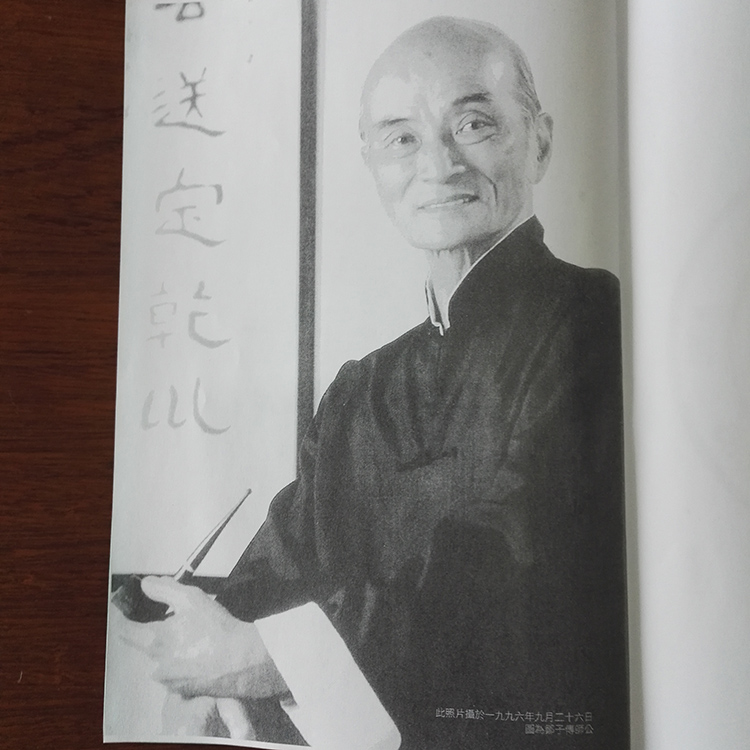 送
定
乾
巛
此照片攝於一九九六年九月二十六日
圖為鄒子傳師公